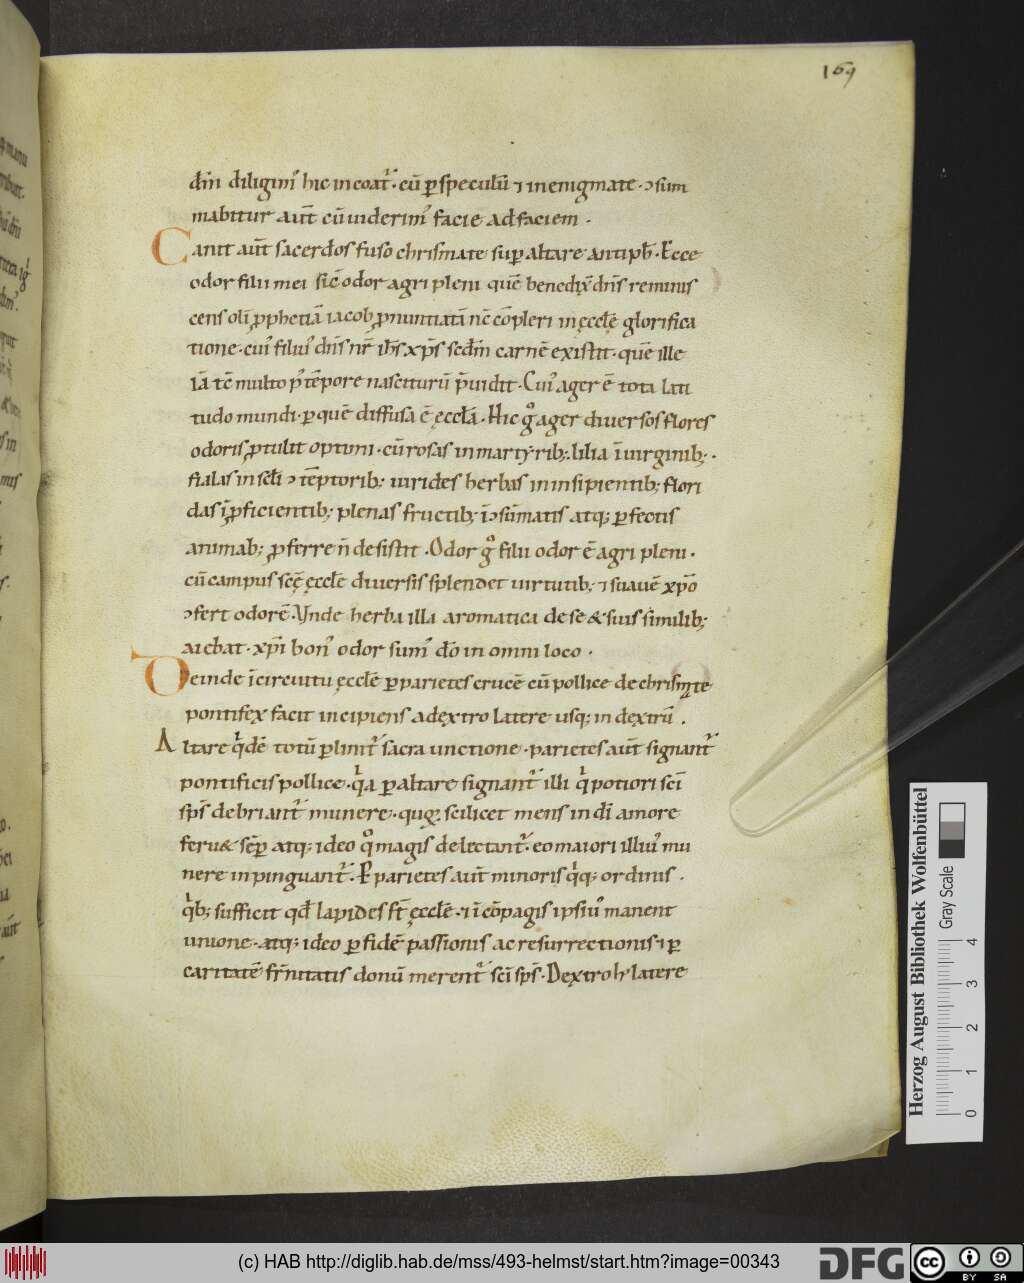 169
dm̄ diligim᷒ hic incoat᷑. cū ꝑspeculū ⁊ inenigmate. ↄsum
mabitur aut̄ cū uiderim᷒ facie adfaciem.
Canit aut̄ sacerdos fuso chrismate suꝑ altare antiph̄. Ecce
odor filii mei sic̄ odor agri pleni quē benedix̄ dn̄s reminis
cens olī ꝓphetiā iacob ꝓnuntiatā nc̄ cōpleri in ęcclē glorifica
tione. cui᷒ filiu᷒ dn̄s nr̄ ih̄s xp̄s scdm̄ carnē existit. quē ille
iā tc̄ multo p᷒ tēpore nasciturū p̄uidit. Cui᷒ ager ē tota lati
tudo mundi. ꝑ quē diffusa ē ęccła. Hic gͦ ager diuersos flores
odoris ꝓtulit optimi. cū rosas in martyrib; lilia ī uirginib;.
fialas in scłi ↄtēptorib; uirides herbas in insipientib; flori
das ī ꝓficientib; plenas fructib; ī ↄsūmatis atq; ꝑfectis
animab; ꝓferre n̄ desistit. Odor gͦ filii odor ē agri pleni.
cū campus scę̄ ęcclē diuersis splendet uirtutib; ⁊ suauē xp̄o
ↄfert odorē. Vnde herba illa aromatica de se & suis similib;
aiebat. xp̄i bon᷒ odor sum᷒ dō in omni loco.
Deinde ī circuitu ęcclē ꝑ parietes crucē cū pollice de chrismate
pontifex facit incipiens a dextro latere usq; in dextrū.
Altare qͥdē totū ꝑlinit᷑ sacra unctione. parietes aut̄ signant᷑
pontificis pollice. qͥa ꝑ altare signant᷑ illi qͥ potiori sc̄i
sp̄s debriant᷑ munere. quoꝝ scilicet mens in dī amore
feru& sēꝑ atq; ideo qͦ magis delectant᷑. eo maiori illiu᷒ mu
nere inpinguant᷑. ꝑ parietes aut̄ minoris qͥq; ordinis.
qͥb; sufficit qđ lapides st̄ ęcclē. ⁊ ī cōpagis ipsiu᷒ manent
unione. atq; ideo ꝑ fidē passionis ac resurrectionis ⁊ ꝑ
caritatē fr̄nitatis donū merent᷑ sc̄i sp̄s. Dextro latere
Herzog August Bibliothek Wolfenbüttel
Gray Scale
0 1 2 3 4
(c) HAB http://diglib.hab.de/mss/493-helmst/start.htm?image=00343
DFG
cc BY SA